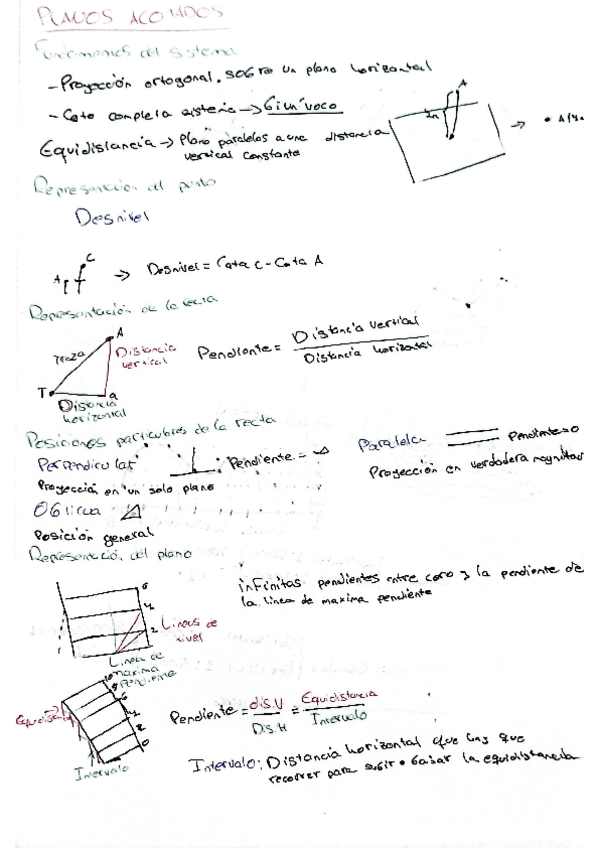 PLANOS ACOTADOS
Fundamentos del sistema
- Proyección ortogonal sobre un plano horizontal
- Cota completa sistema → Biunívoco
Equidistancia → Plano paralelos a una distancia
vertical constante
A
2m
→ • A
Representación del punto
Desnivel
A C → Desnivel = Cota C - Cota A
Representación de la recta
A
Traza
Distancia
vertical
T a
Distancia
horizontal
Pendiente = Distancia vertical
Distancia horizontal
Posiciones particulares de la recta
Perpendicular Pendiente = ∞
Proyección en un solo plano
Paralela Pendiente = 0
Proyección en verdadera magnitud
Oblicua
Posición general
Representación del plano
6
4
2
Líneas de
nivel
Línea de
maxima
pendiente
infinitas pendientes entre cero y la pendiente de
la linea de maxima pendiente
Equidista
10
8
6
4
2
0
Intervalo
Pendiente = dis.V = Equidistancia
Dis.H Intervalo
Intervalo: Distancia horizontal que hay que
recorrer para subir o bajar la equidistancia